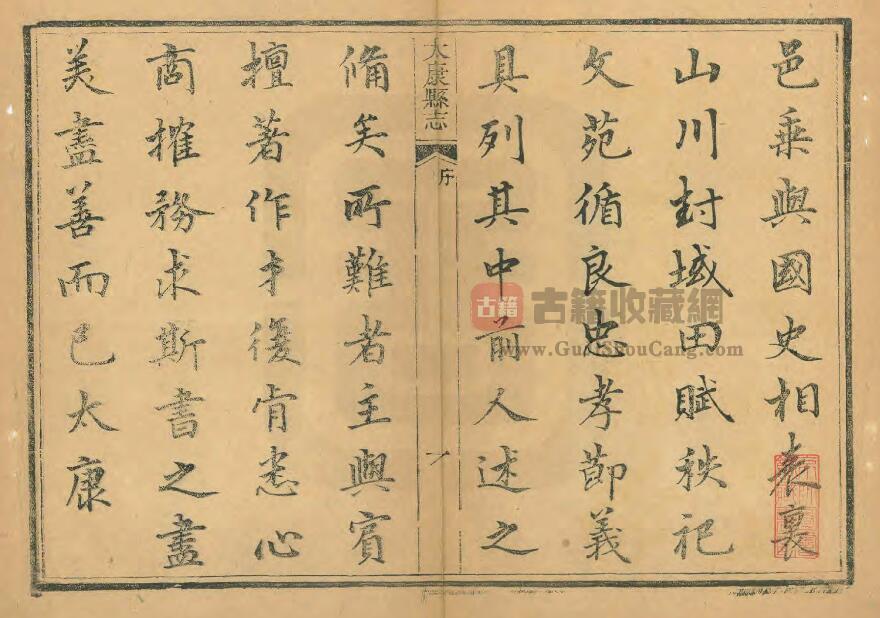 邑乗與國史相表裏
山川封域田賦秩祀
文苑循良忠孝節義
具列其中前人述之
太康縣志
序
一
備矣所難者主與賓
擅著作才復肯悉心
商搉務求斯書之盡
美盡善而已太康
古籍
古籍收藏網
www.GuJiShouCang.com